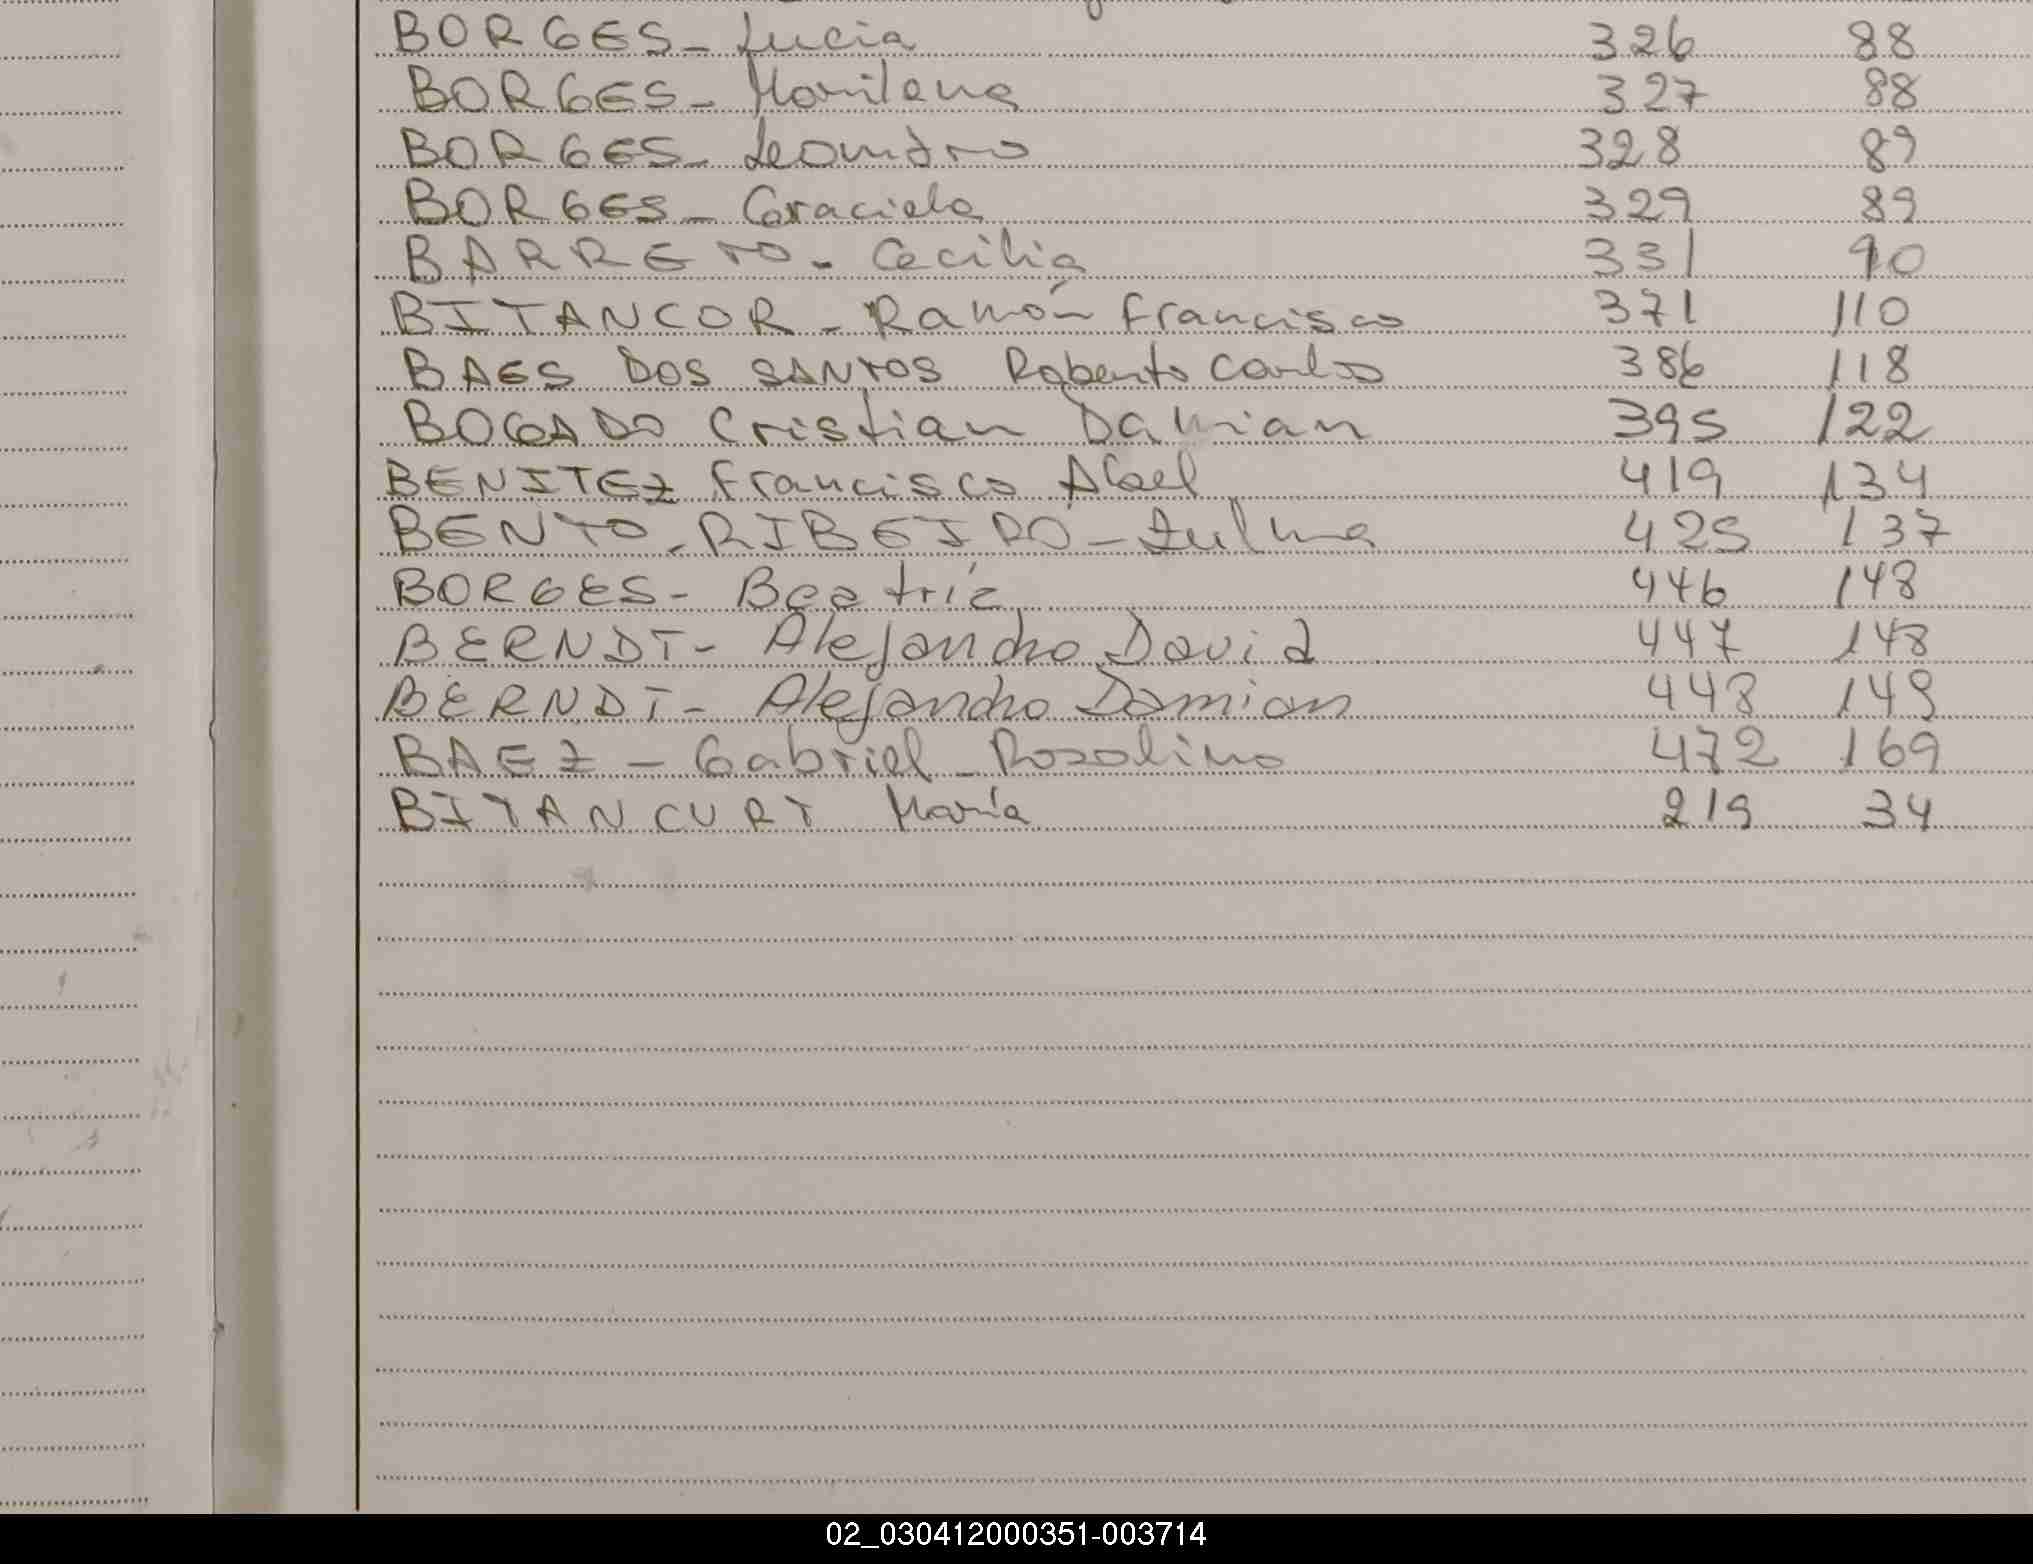 BORGES - Lucia 326 88
BORGES - Marilena 327 88
BORGES - Leandro 328 89
BORGES - Graciela 329 89
BARRETO - Cecilia 331 90
BITANCOR - Ramón Francisco 371 110
BAES DOS SANTOS Roberto Carlos 386 118
BOGADO Cristian Damian 395 122
BENITEZ Francisco Abel 419 134
BENTO - RIBEIRO - Zulma 425 137
BORGES - Beatríz 446 148
BERNDT - Alejandro David 447 148
BERNDT - Alejandro Damian 448 149
BAEZ - Gabriel - Rosolino 472 169
BITANCURT María 219 34
02_030412000351-003714